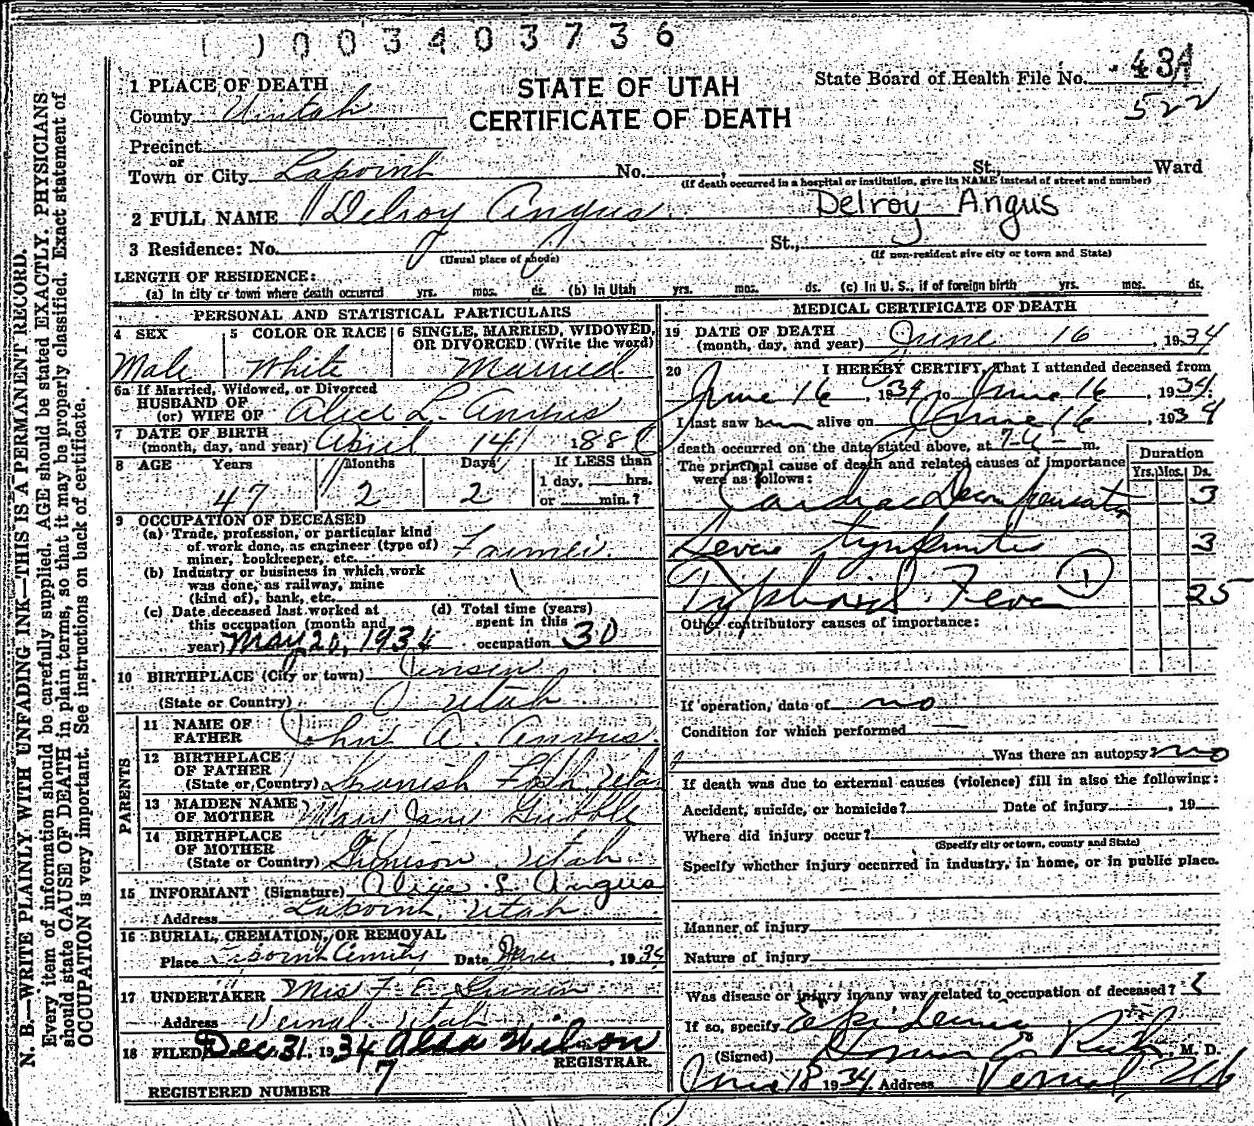 0 0 3 4 0 3 7 3 6
STATE OF UTAH
CERTIFICATE OF DEATH
State Board of Health File No. 43A
522
1 PLACE OF DEATH
County Uintah
Precinct
or
Town or City Lapoint No. St., Ward
(If death occurred in a hospital or institution, give its NAME instead of street and number)
2 FULL NAME Delroy Angus Delroy Angus
3 Residence: No. St.,
(Usual place of abode) (If non-resident give city or town and State)
LENGTH OF RESIDENCE:
(a) In city or town where death occurred yrs. mos. ds. (b) In Utah yrs. mos. ds. (c) In U. S., if of foreign birth yrs. mos. ds.
PERSONAL AND STATISTICAL PARTICULARS
4 SEX 5 COLOR OR RACE 6 SINGLE, MARRIED, WIDOWED, OR DIVORCED (Write the word)
Male White Married
6a If Married, Widowed, or Divorced
HUSBAND OF
(or) WIFE OF Alice L. Angus
7 DATE OF BIRTH
(month, day, and year) April 14 188
8 AGE Years Months Days If LESS than
1 day, hrs.
or min.?
47 2 2
9 OCCUPATION OF DECEASED
(a) Trade, profession, or particular kind
of work done, as engineer (type of)
miner, bookkeeper, etc. Farmer
(b) Industry or business in which work
was done, as railway, mine
(kind of), bank, etc.
(c) Date deceased last worked at
this occupation (month and
year) May 20, 1934
(d) Total time (years)
spent in this
occupation 30
10 BIRTHPLACE (City or town) Jensen
(State or Country) Utah
PARENTS
11 NAME OF
FATHER John A. Angus
12 BIRTHPLACE
OF FATHER
(State or Country) Spanish Fork Utah
13 MAIDEN NAME
OF MOTHER Mary Jane Gribble
14 BIRTHPLACE
OF MOTHER
(State or Country) Gunnison Utah
15 INFORMANT (Signature) Alice L Angus
Address Lapoint, Utah
16 BURIAL, CREMATION, OR REMOVAL
Place Lapoint Date , 1934
17 UNDERTAKER Mrs F. E.
Address Vernal Utah
18 FILED Dec 31, 1934 Alda Wilson
REGISTRAR.
REGISTERED NUMBER 7
MEDICAL CERTIFICATE OF DEATH
19 DATE OF DEATH
(month, day, and year) June 16, 1934
20 I HEREBY CERTIFY, That I attended deceased from
June 16, 1934 to June 16, 1934.
I last saw him alive on June 16, 1934
death occurred on the date stated above, at m.
The principal cause of death and related causes of importance
were as follows:
Duration
Yrs. Mos. Ds.
Cardiac Decompensation 3
Severe 3
Typhoid Fever 1 25
Other contributory causes of importance:
If operation, date of no
Condition for which performed
Was there an autopsy no
If death was due to external causes (violence) fill in also the following:
Accident, suicide, or homicide? Date of injury , 19
Where did injury occur?
(Specify city or town, county and State)
Specify whether injury occurred in industry, in home, or in public place.
Manner of injury
Nature of injury
Was disease or injury in any way related to occupation of deceased?
If so, specify Epidemic
(Signed) Rich, M. D.
June 18 1934 Address Vernal Utah
N. B.—WRITE PLAINLY WITH UNFADING INK—THIS IS A PERMANENT RECORD.
Every item of information should be carefully supplied. AGE should be stated EXACTLY. PHYSICIANS
should state CAUSE OF DEATH in plain terms, so that it may be properly classified. Exact statement of
OCCUPATION is very important. See instructions on back of certificate.